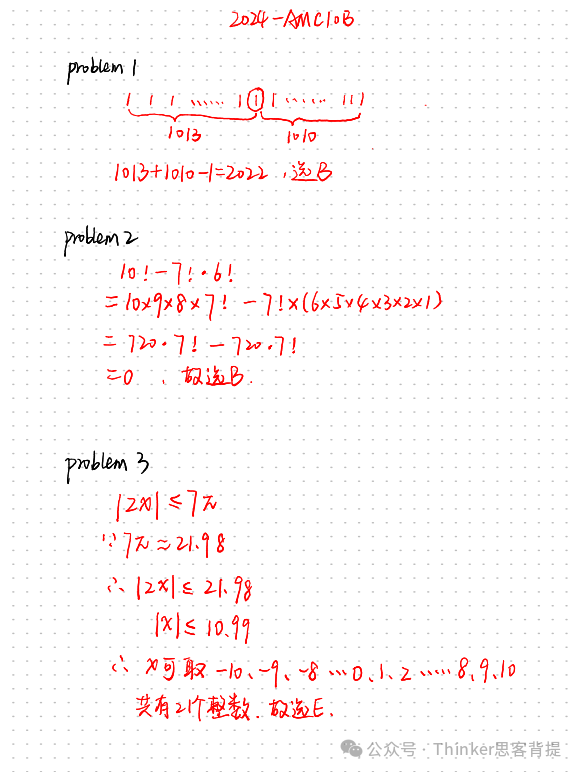 2024-AMC10B
problem 1
1 1 1 …… 1 1 1 …… 1 1 1
1013 1010
1013+1010-1=2022 ,选B
problem 2
10!-7!·6!
=10×9×8×7! -7!×(6×5×4×3×2×1)
=720·7!-720·7!
=0 ,故选B.
problem 3
|2x|≤7π
∵7π≈21.98
∴|2x|≤21.98
|x|≤10.99
∴x可取 -10、-9、-8…0、1、2……8、9、10
共有21个整数.故选E.
公众号·Thinker思客背提